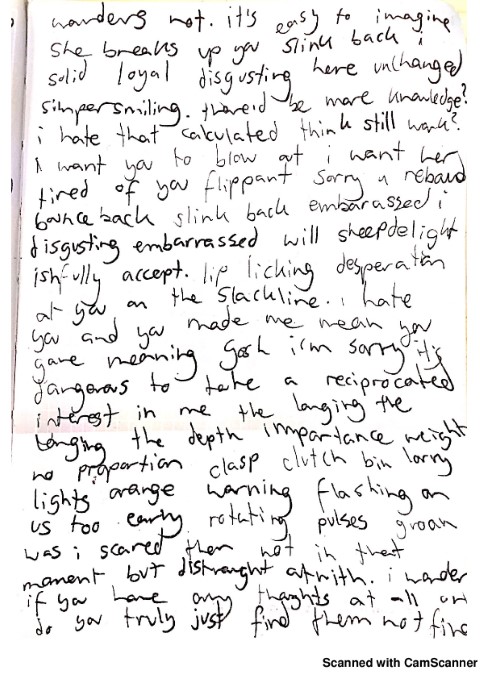 wanders not. it's easy to imagine
she breaks up you slink back i
solid loyal disgusting here unchanged
simpersmiling. there'd be more knowledge?
i hate that calculated think still work?
i want you to blow at i want her
tired of you flippant sorry u rebound
bounce back slink back embarassed i
disgusting embarrassed will sheepdelight
ishfully accept. lip licking desperation
at you on the slackline. i hate
you and you made me mean you
gave meaning gosh i'm sorry it's
dangerous to take a reciprocated
interest in me the longing the
longing the depth importance weight
no proportion clasp clutch bin lorry
lights orange warning flashing on
us too early rotating pulses groan
was i scared then not in that
moment but distraught at with. i wonder
if you have any thoughts at all or
do you truly just find them not fine
Scanned with CamScanner